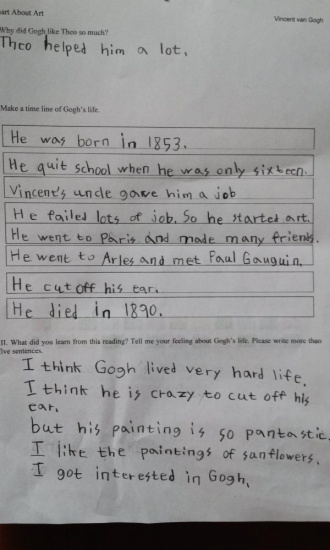 art About Art
Vincent van Gogh
Why did Gogh like Theo so much?
Theo helped him a lot.
Make a time line of Gogh's life.
He was born in 1853.
He quit school when he was only sixteen.
Vincent's uncle gave him a job
He failed lots of job. So he started art.
He went to Paris and made many friends.
He went to Arles and met Paul Gauguin.
He cut off his ear.
He died in 1890.
II. What did you learn from this reading? Tell me your feeling about Gogh's life. Please write more than
ive sentences.
I think Gogh lived very hard life.
I think he is crazy to cut off his
ear.
but his painting is so pantastic.
I like the paintings of sanflowers.
I got interested in Gogh.